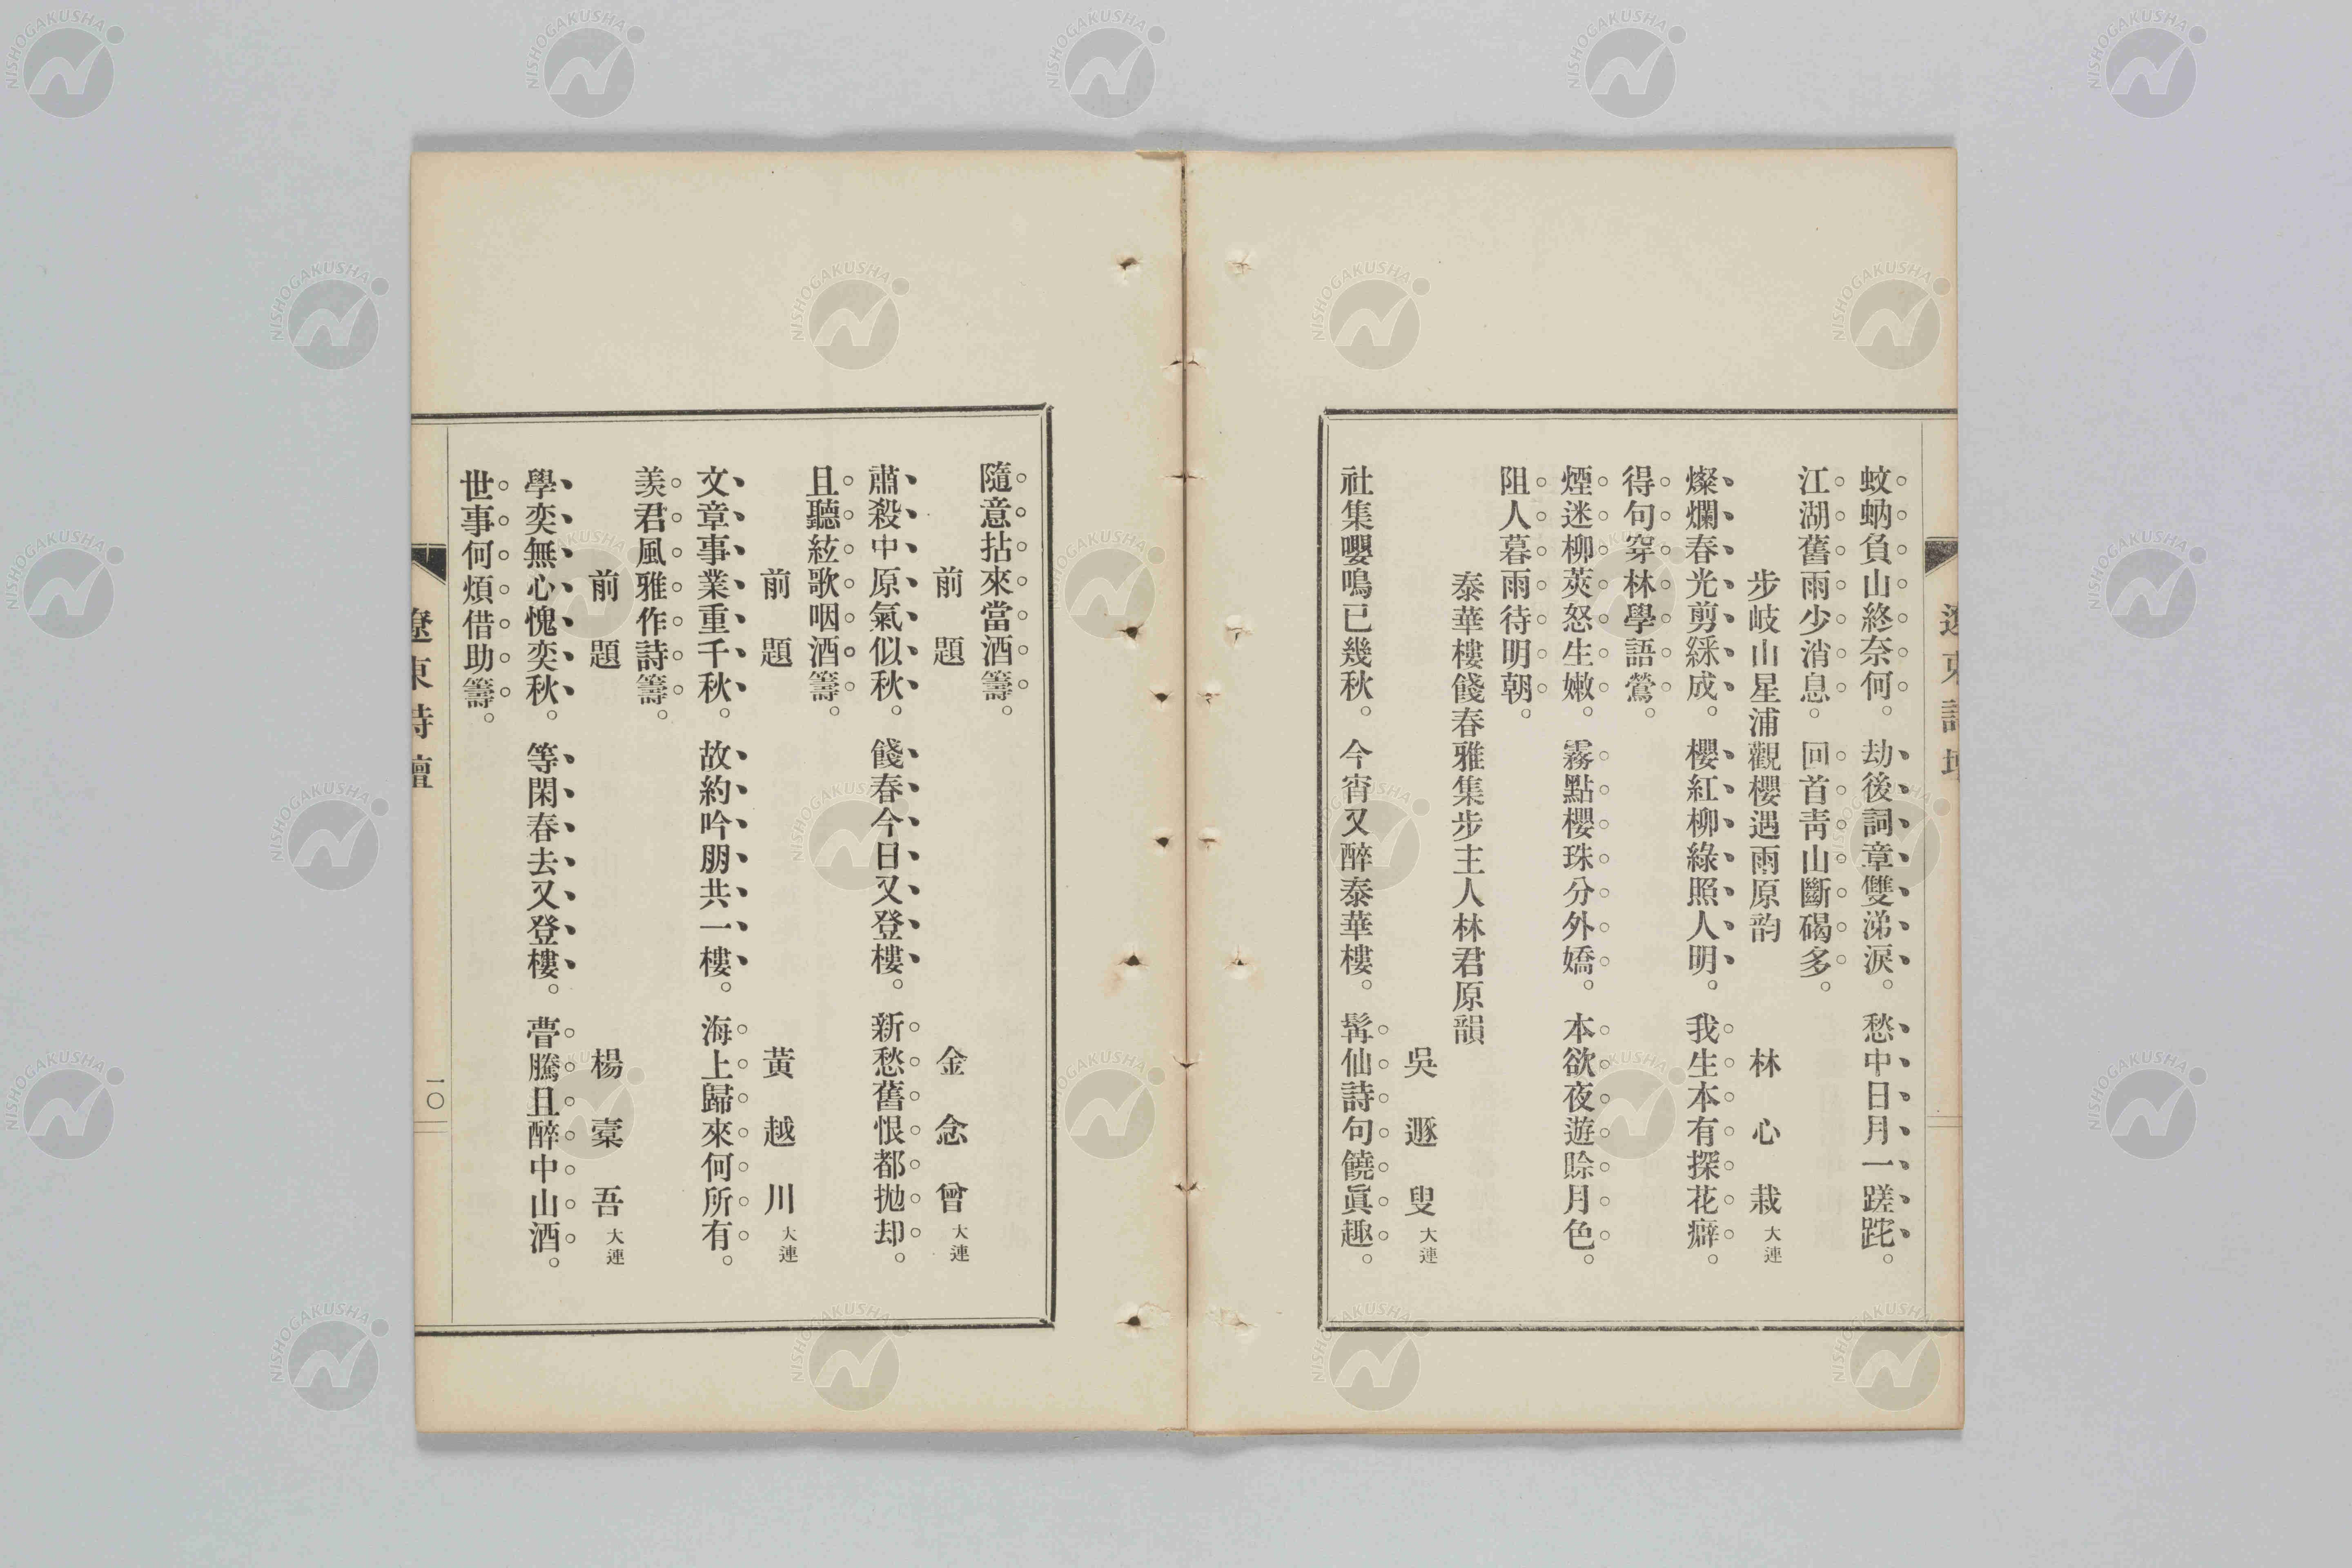 蚊蚋負山終奈何。劫後詞章雙涕淚。愁中日月一蹉跎。
江湖舊雨少消息。回首靑山斷碣多。
步岐山星浦觀櫻遇雨原韵
林心栽 大連
燦爛春光剪綵成。櫻紅柳綠照人明。我生本有探花癖。
得句穿林學語鶯。
煙迷柳莢怒生嫩。霧點櫻珠分外嬌。本欲夜遊賒月色。
阻人暮雨待明朝。
泰華樓餞春雅集步主人林君原韻
吳遯叟 大連
社集嚶鳴已幾秋。今宵又醉泰華樓。髯仙詩句饒眞趣。
隨意拈來當酒籌。
前題
金念曾 大連
肅殺中原氣似秋。餞春今日又登樓。新愁舊恨都抛却。
且聽絃歌咽酒籌。
前題
黃越川 大連
文章事業重千秋。故約吟朋共一樓。海上歸來何所有。
羨君風雅作詩籌。
前題
楊槖吾 大連
學奕無心愧奕秋。等閑春去又登樓。瞢騰且醉中山酒。
世事何煩借助籌。
遼東詩壇
一〇
NISHOGAKUSHA